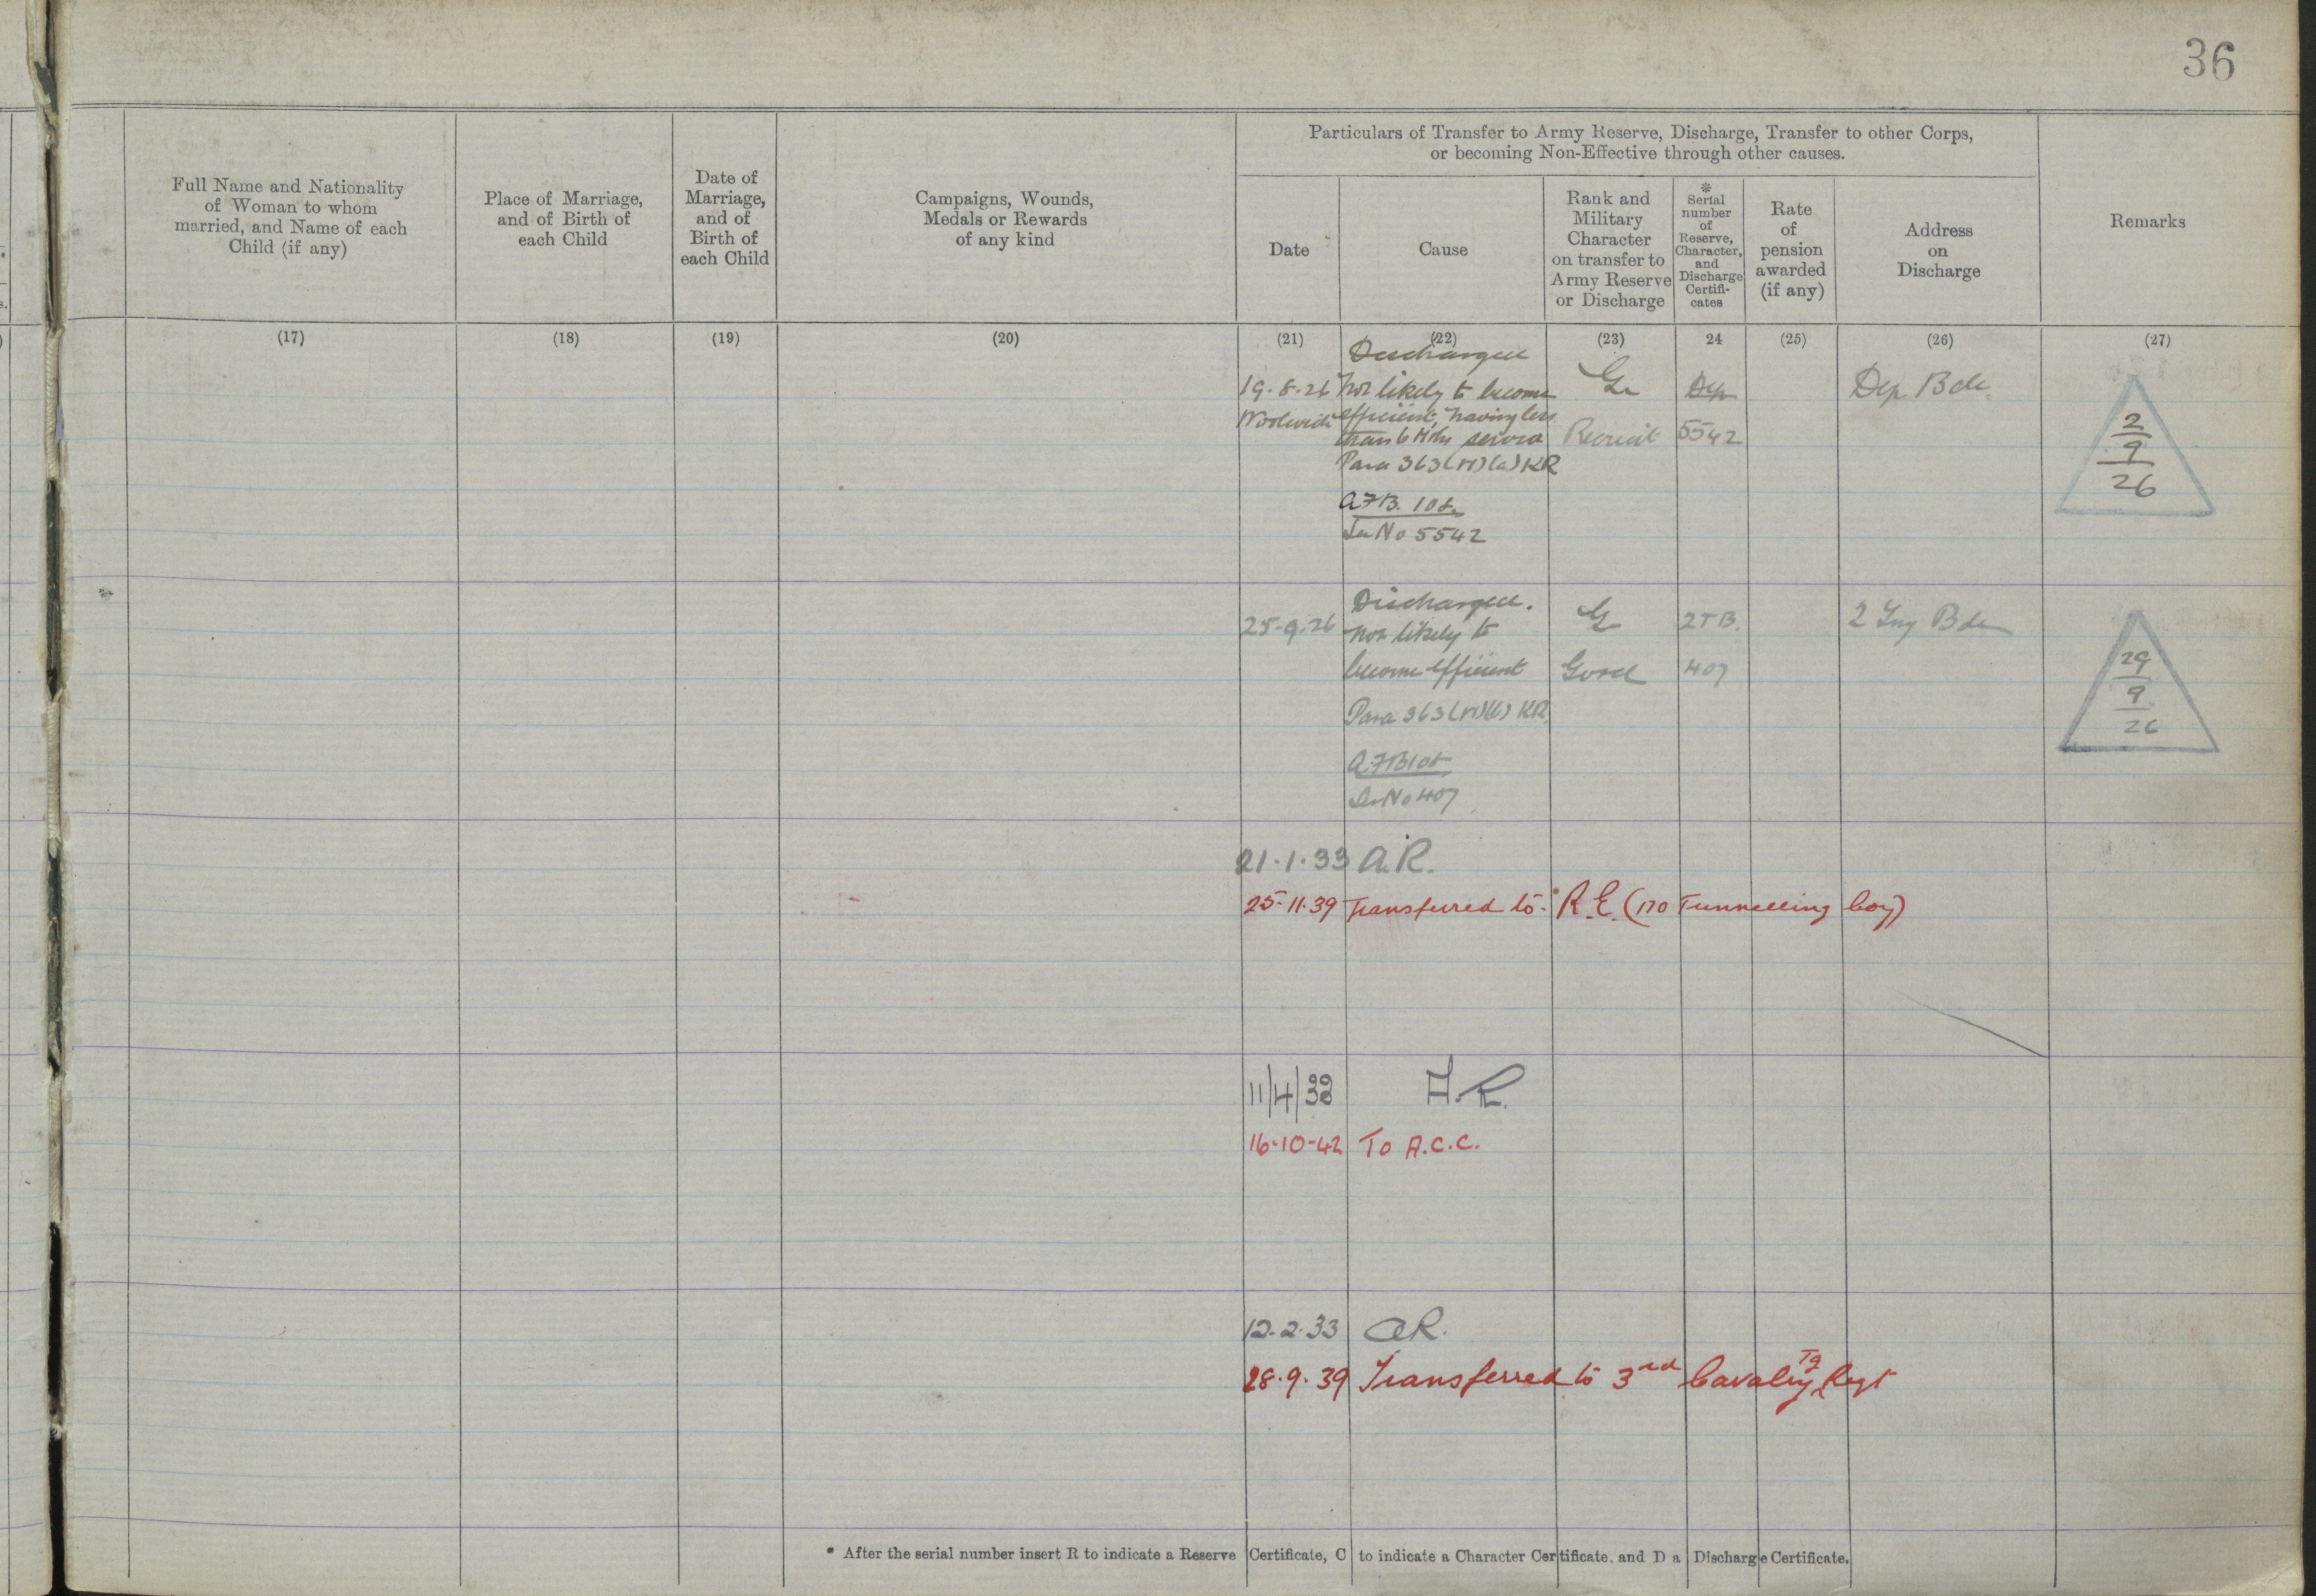 36
Particulars of Transfer to Army Reserve, Discharge, Transfer to other Corps,
or becoming Non-Effective through other causes.
Full Name and Nationality
of Woman to whom
married, and Name of each
Child (if any)
Place of Marriage,
and of Birth of
each Child
Date of
Marriage,
and of
Birth of
each Child
Campaigns, Wounds,
Medals or Rewards
of any kind
Date
Cause
Rank and
Military
Character
on transfer to
Army Reserve
or Discharge
*
Serial
number
of
Reserve,
Character,
and
Discharge
Certifi-
cates
Rate
of
pension
awarded
(if any)
Address
on
Discharge
Remarks
(17) (18) (19) (20) (21) (22) (23) 24 (25) (26) (27)
Discharged
19.8.26 not likely to become Gr Dep Dep Bde.
Woolwich efficient, having less
than 6 Mths service Recruit 5542
Para 363(VI)(a) KR
A.F.B. 108.
Ser No 5542
2
9
26
Discharged.
25-9-26 not likely to Gr 2TB. 2 Trg Bde
become efficient Good 407
Para 363(VI)(b) KR
A.F.B108
Ser No 407
29
9
26
21.1.33 A.R.
25-11-39 Transferred to R.E. (170 Tunnelling Coy)
11/4/33 A.R.
16-10-42 To A.C.C.
12.2.33 AR.
28.9.39 Transferred to 3rd Cavalry Tg Regt
* After the serial number insert R to indicate a Reserve Certificate, C to indicate a Character Certificate, and D a Discharge Certificate.